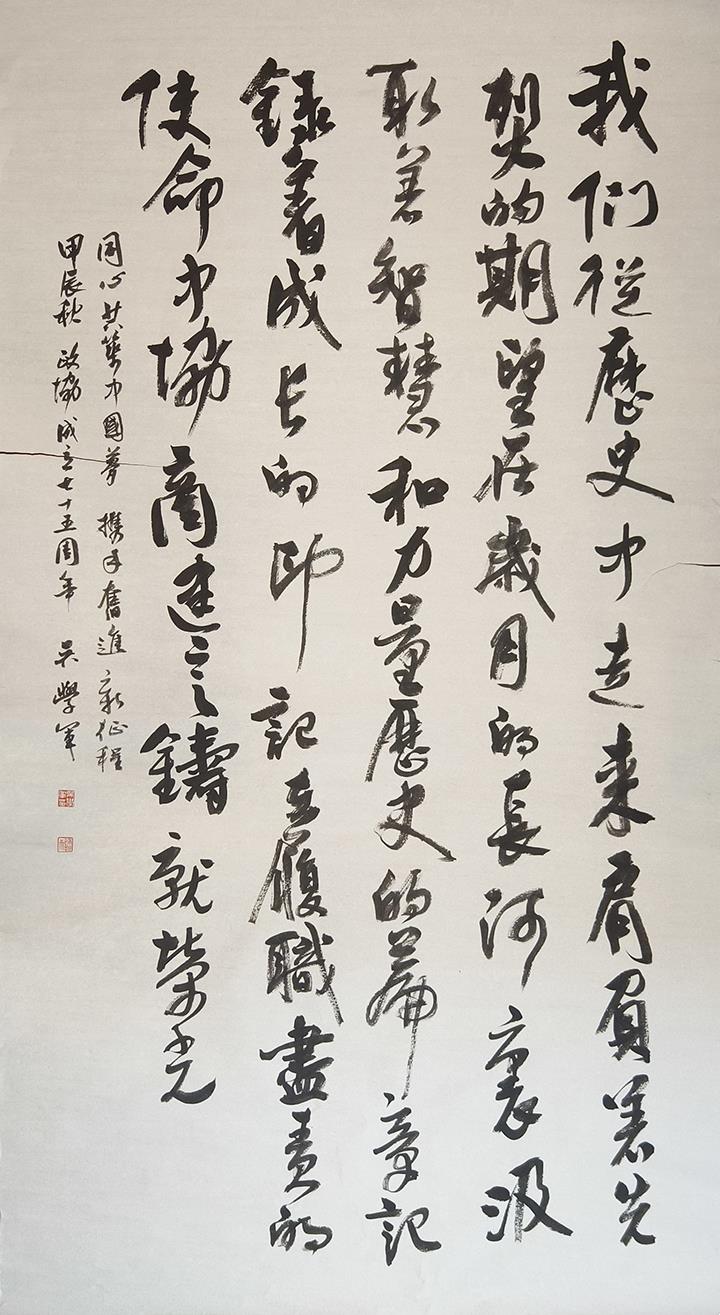 我们從歷史中走来肩負著先
烈的期望在歲月的長河裏汲
取着智慧和力量歷史的篇章記
録着成长的印記在履職盡责的
使命中協商建言鑄就榮光
同心共築中國夢 携手奮進新征程
甲辰秋 政協成立七十五周年 吴學军